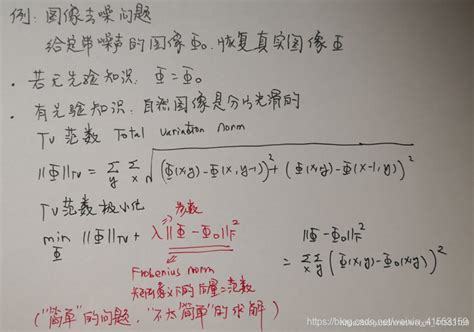 例: 图像去噪问题
给定带噪声的图像Φ₀, 恢复真实图像Φ
· 若无先验知识, Φ = Φ₀
· 有先验知识, 自然图像是分片光滑的
TV 范数 Total variation norm
||Φ||TV = Σ_y Σ_x √( (Φ(x,y) - Φ(x,y-1))² + (Φ(x,y) - Φ(x-1,y))² )
TV范数极小化
参数
min_Φ ||Φ||TV + λ||Φ - Φ₀||²_F
||Φ - Φ₀||²_F
= Σ_x Σ_y (Φ(x,y) - Φ₀(x,y))²
Frobenius norm
矩阵意义下的 范数
("简单"的问题, "不太简单"的求解)
https://blog.csdn.net/weixin_41563159